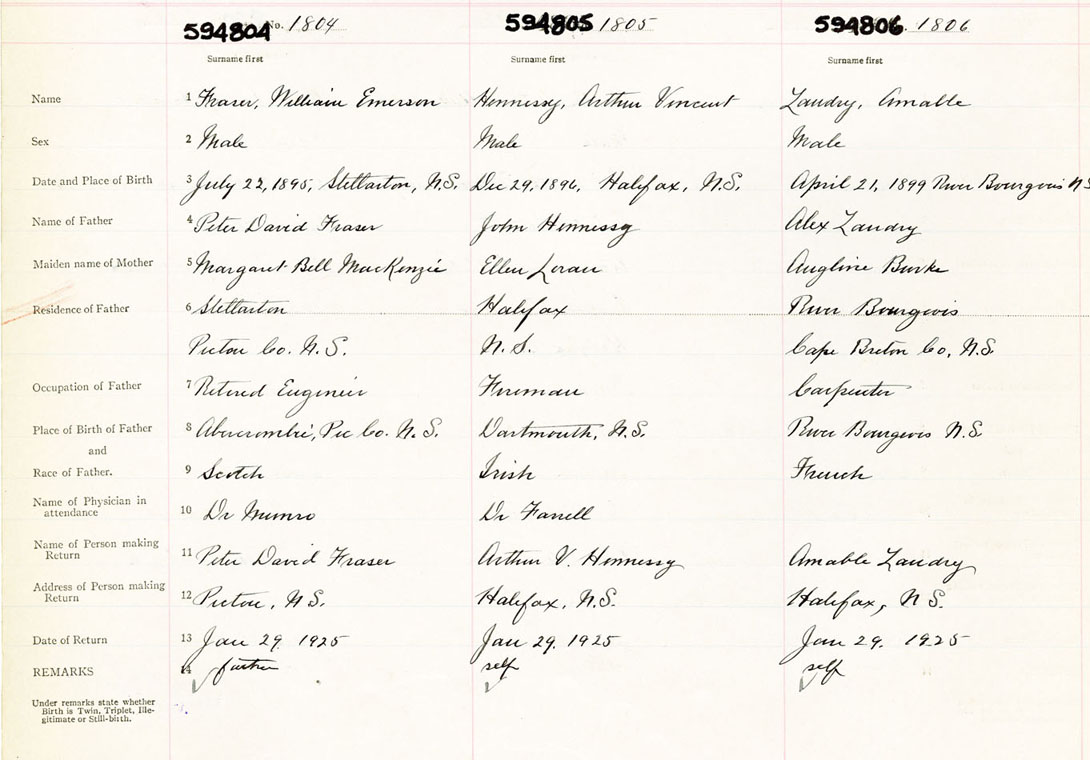 594804 No. 1804 594805 1805 594806 1806
Surname first Surname first Surname first
Name 1 Fraser, William Emerson Hennessy, Arthur Vincent Landry, Amable
Sex 2 Male Male Male
Date and Place of Birth 3 July 22, 1895, Stellarton, N.S. Dec 29, 1896, Halifax, N.S. April 21, 1899 River Bourgeois N.S
Name of Father 4 Peter David Fraser John Hennessy Alex Landry
Maiden name of Mother 5 Margaret Bell MacKenzie Ellen Loran Angline Burke
Residence of Father 6 Stellarton Halifax River Bourgeois
Pictou Co. N.S. N.S. Cape Breton Co, N.S.
Occupation of Father 7 Retired Engineer Foreman Carpenter
Place of Birth of Father 8 Abercrombie, Pic Co. N.S. Dartmouth, N.S. River Bourgeois N.S.
and
Race of Father. 9 Scotch Irish French
Name of Physician in
attendance 10 Dr Munro Dr Farrell
Name of Person making
Return 11 Peter David Fraser Arthur V. Hennessy Amable Landry
Address of Person making
Return 12 Pictou, N.S. Halifax, N.S. Halifax, N S.
Date of Return 13 Jan 29, 1925 Jan 29, 1925 Jan 29, 1925
REMARKS 14 father self self
Under remarks state whether
Birth is Twin, Triplet, Ille-
gitimate or Still-birth.